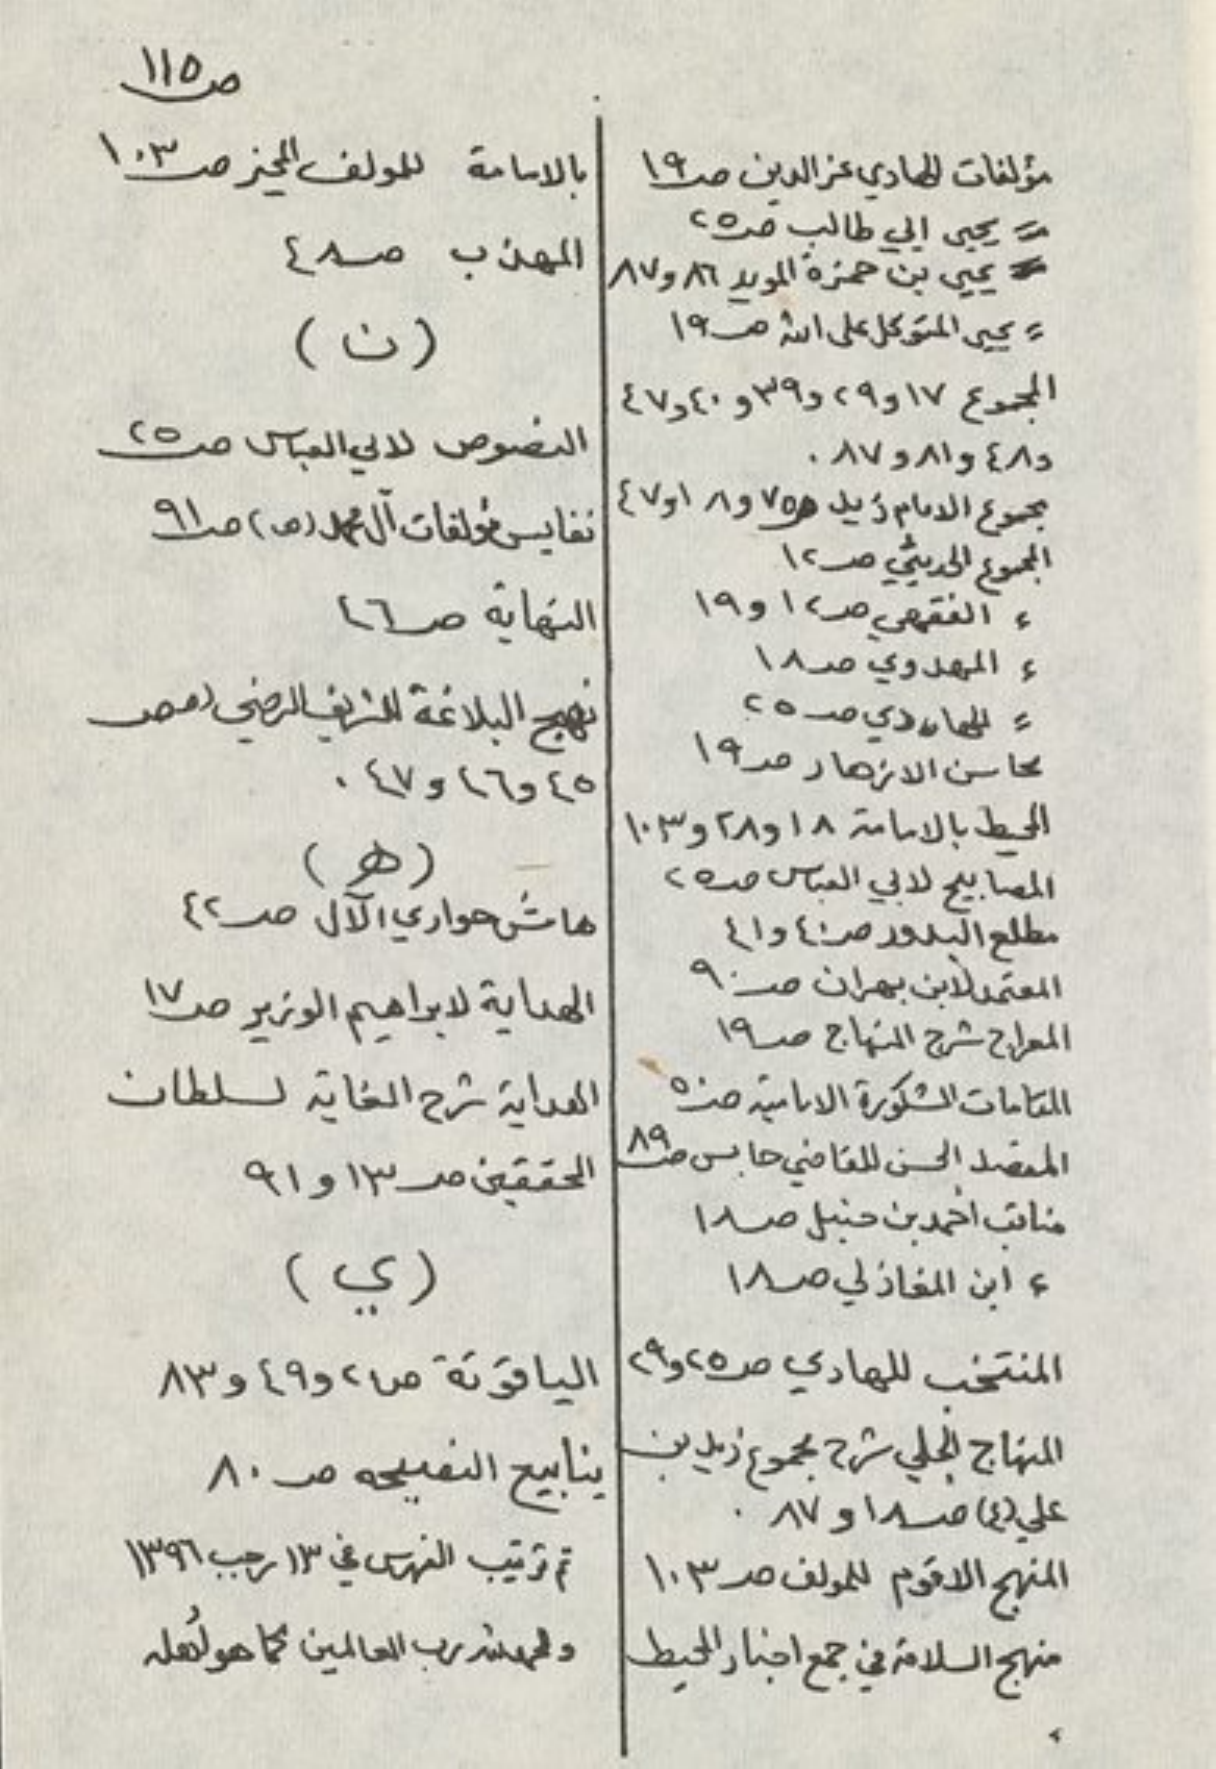 ص١١٥
مؤلفات الهادي عز الدين ص١٩
= يحيى ابي طالب ص٢٥
= يحيى بن حمزة المويد ٨٦ و٨٧
= يحيى المتوكل على الله ص١٩
المجموع ١٧ و٢٩ و٣٩ و٤٠ و٤٧
و٤٨ و٨١ و٨٧ .
مجموع الامام زيد ص٧ و١٨ و٤٧
المجموع الحديثي ص١٢
= الفقهي ص١٢ و١٩
= المهدوي ص١٨
= للهادي ص٢٥
محاسن الازهار ص١٩
المحيط بالامامة ١٨ و٢٨ و١٠٣
المصابيح لابي العباس ص٢٥
مطلع البدور ص٤٠ و٤١
المعتمد لابن بهران ص٩٠
المعراج شرح المنهاج ص١٩
المقامات المشكورة الامامية ص٥٠
المقصد الحسن للقاضي حابس ص٨٩
مناقب احمد بن حنبل ص١٨
= ابن المغازلي ص١٨
المنتخب للهادي ص٢٥ و٢٩
المنهاج الجلي شرح مجموع زيد بن
علي (ع) ص١٨ و٨٧ .
المنهج الاقوم للمولف ص١٠٣
منهج السلامة في جمع اخبار المحيط
بالامامة للمولف المجيز ص١٠٣
المهذب ص٤٨
(ن)
النصوص لابي العباس ص٢٥
نفايس مؤلفات آل محمد (ص) ص٩١
النهاية ص٤٦
نهج البلاغة للشريف الرضي ص
٤٥ و٤٦ و٤٧ .
(هـ)
هامش حواري الآل ص٤٢
الهداية لابراهيم الوزير ص١٧
الهداية شرح الغاية لسلطان
المحققين ص١٣ و٩١
(ي)
الياقوتة ص٢١ و٤٩ و٨٣
ينابيع النصيحه ص٨٠
تم ترتيب الفهرس في ١٣ رجب ١٣٩٦
والحمد لله رب العالمين كما هو أهله